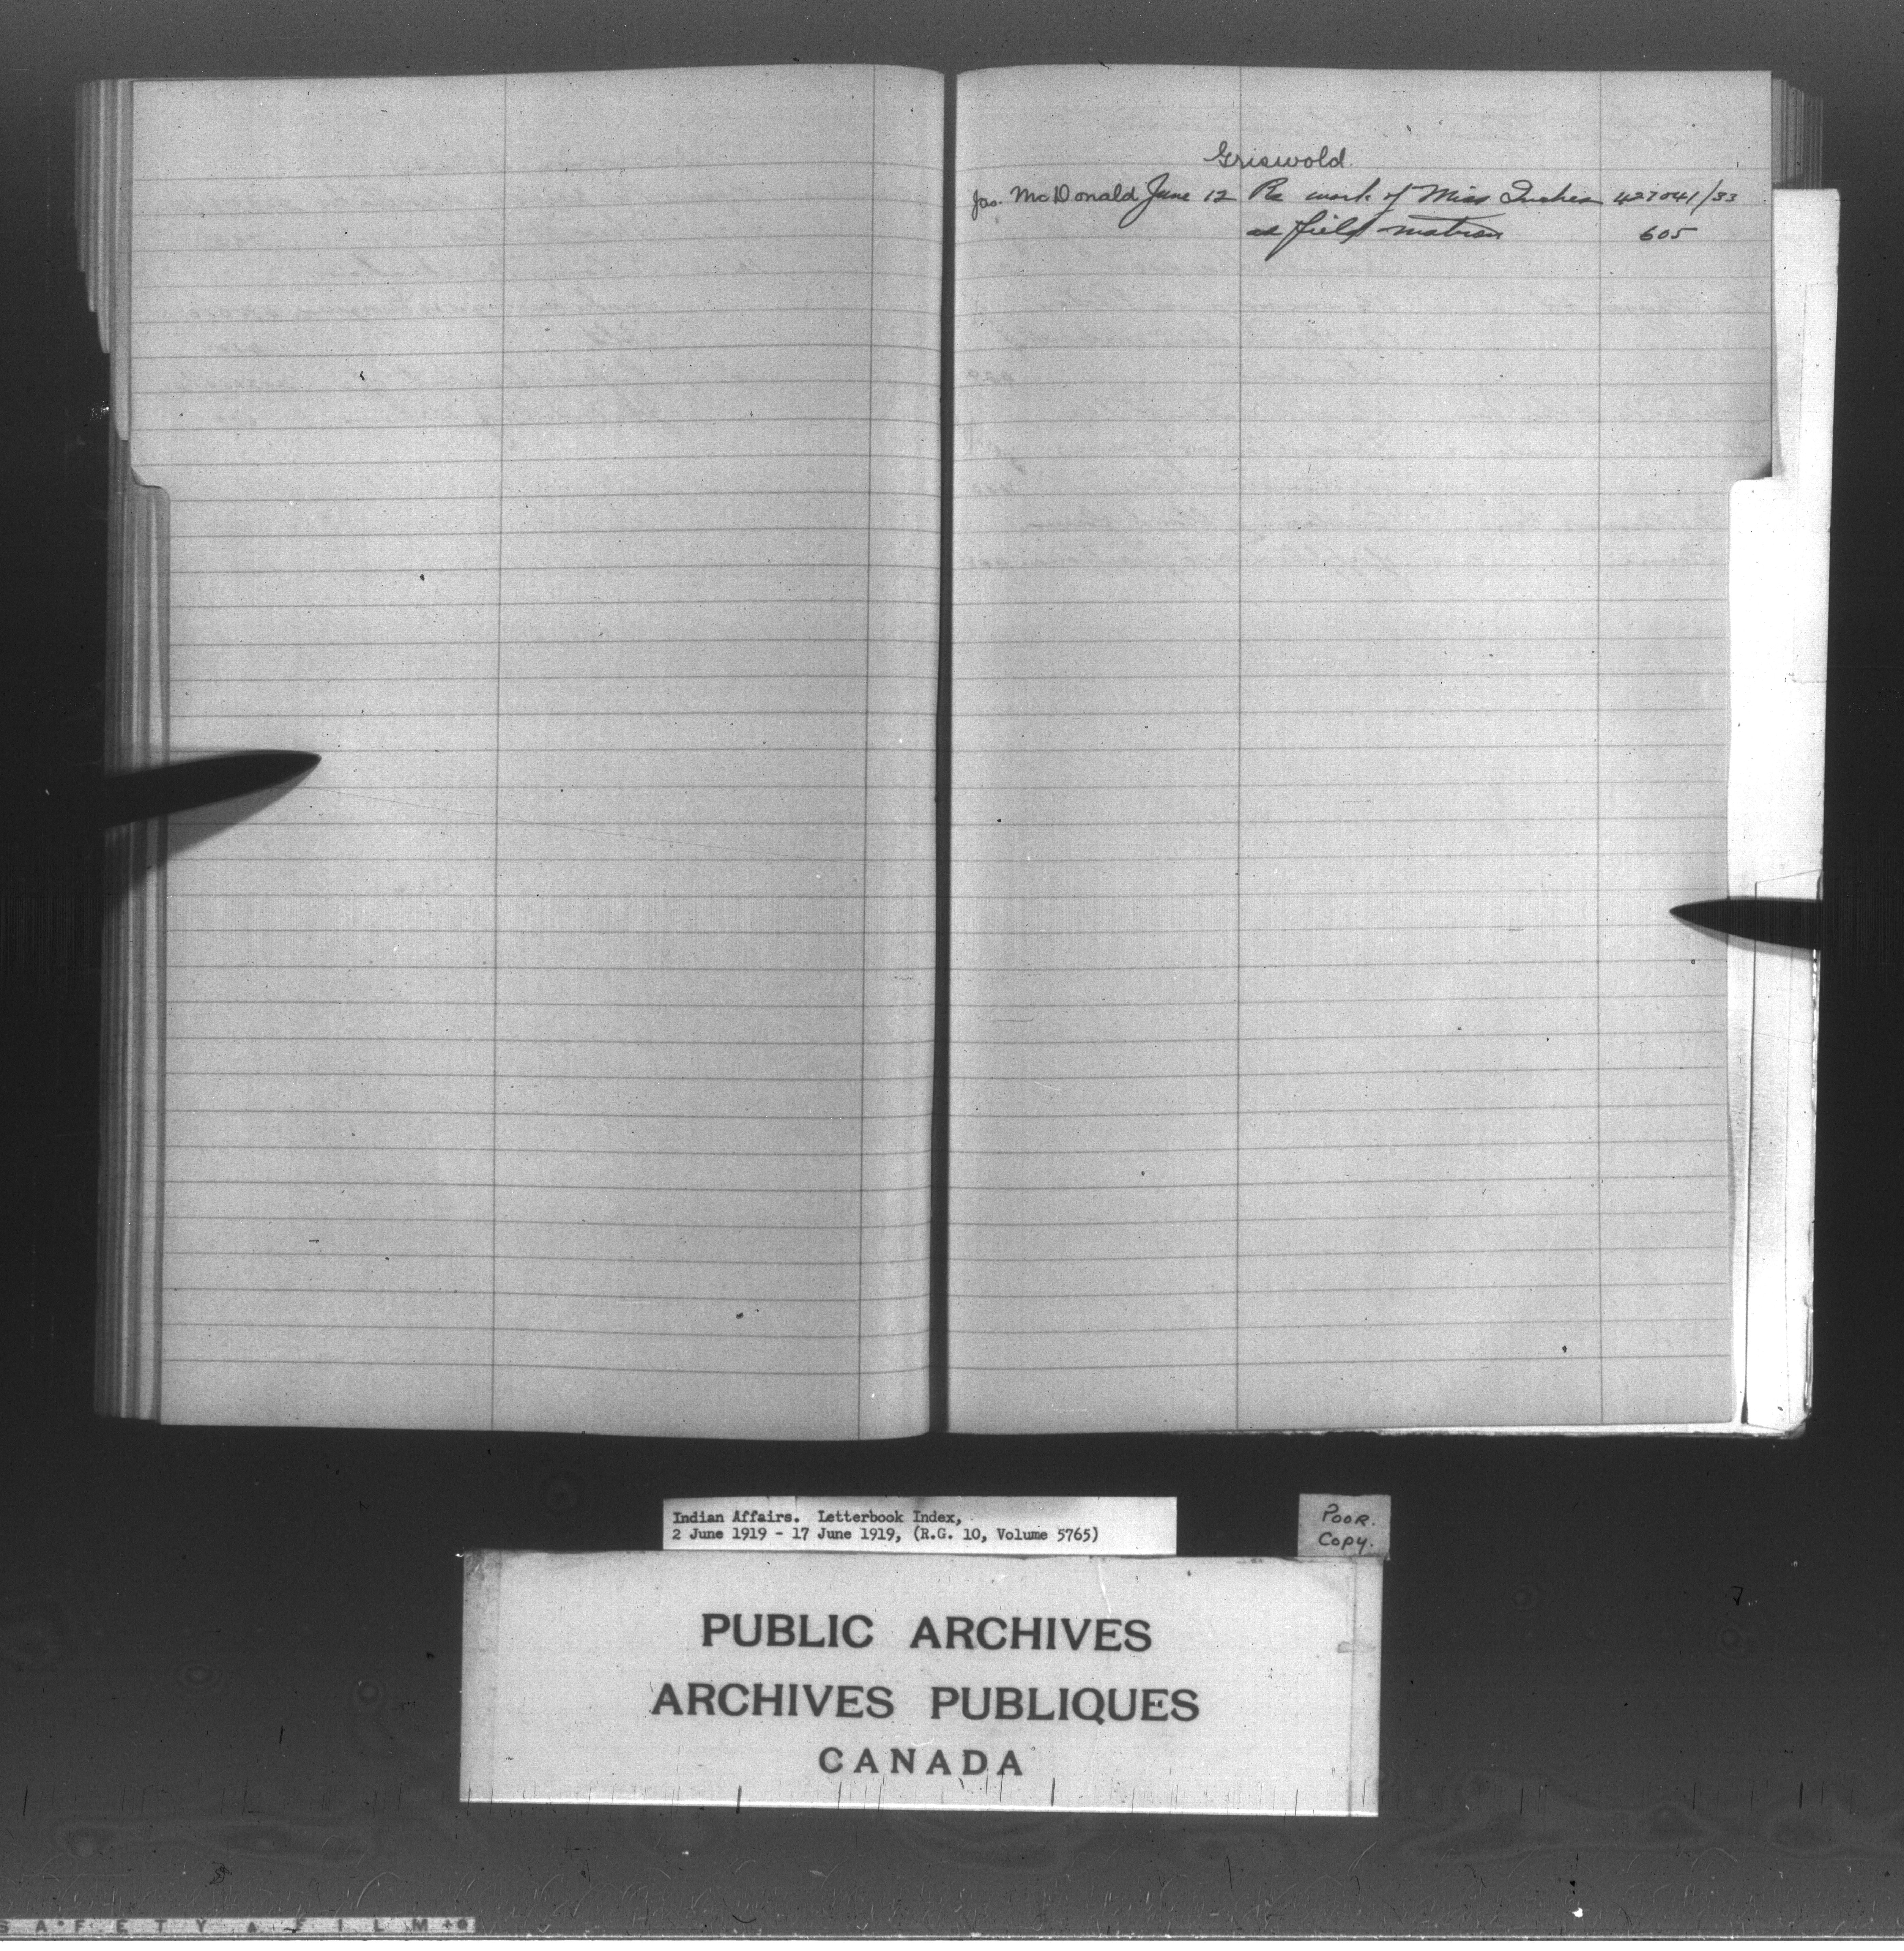 Griswold.
Jas. McDonald June 12 Re work of Miss Inches 427041/33
as field matron 605
Indian Affairs. Letterbook Index,
2 June 1919 - 17 June 1919, (R.G. 10, Volume 5765)
POOR.
COPY.
PUBLIC ARCHIVES
ARCHIVES PUBLIQUES
CANADA
SAFETY FILM